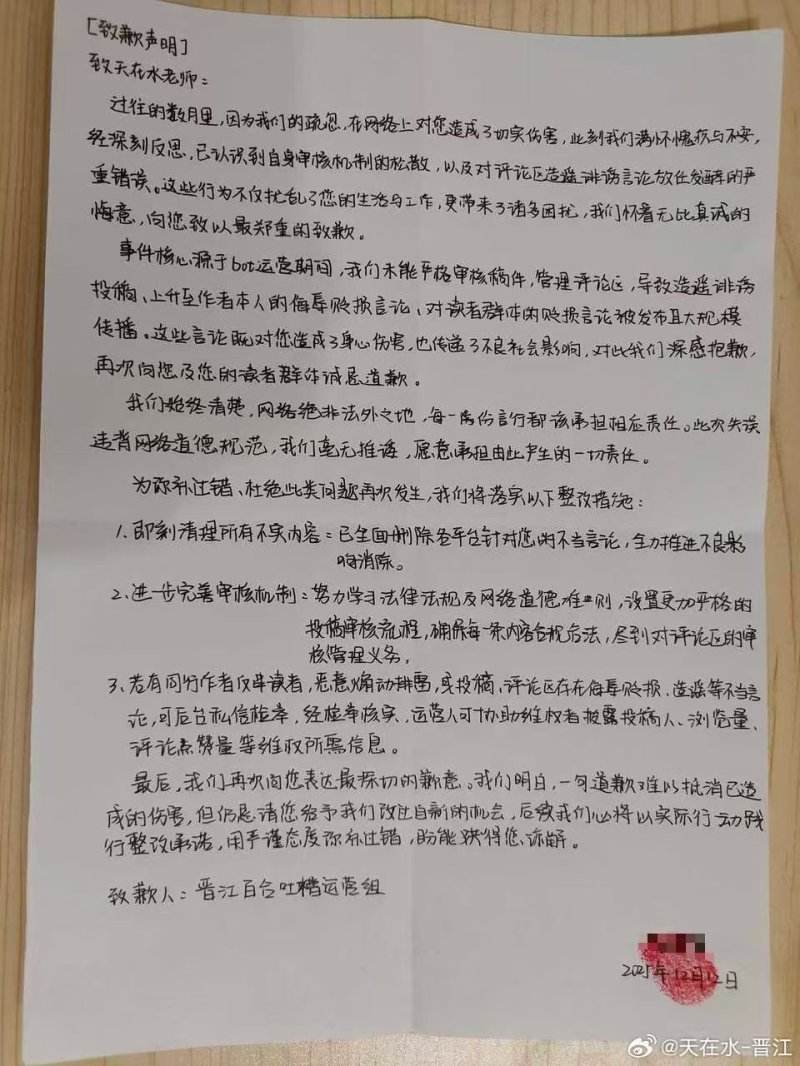 [致歉声明]
致天在水老师：
过往的数月里，因为我们的疏忽，在网络上对您造成了切实伤害，此刻我们满怀愧疚与不安，
经深刻反思，已认识到自身审核机制的松散，以及对评论区造谣诽谤言论放任发酵的严
重错误。这些行为不仅扰乱了您的生活与工作，更带来了诸多困扰，我们怀着无比真诚的
悔意，向您致以最郑重的致歉。
事件核心源于bot运营期间，我们未能严格审核稿件，管理评论区，导致造谣诽谤
投稿、上升至作者本人的侮辱贬损言论、对读者群体的贬损言论被发布且大规模
传播。这些言论既对您造成了身心伤害，也传递了不良社会影响，对此我们深感抱歉，
再次向您及您的读者群体诚恳道歉。
我们始终清楚，网络绝非法外之地，每一份言行都该承担相应责任。此次失误
违背网络道德规范，我们毫无推诿，愿意承担由此产生的一切责任。
为弥补过错、杜绝此类问题再次发生，我们将落实以下整改措施：
1. 即刻清理所有不实内容：已全面删除各平台针对您的不当言论，全力推进不良影
响消除。
2. 进一步完善审核机制：努力学习法律法规及网络道德准则，设置更加严格的
投稿审核流程，确保每一条内容合规合法，尽到对评论区的审
核管理义务。
3. 若有同行作者仅半读者，恶意煽动排雷，或投稿、评论区存在侮辱贬损、造谣等不当言
论，可后台私信检举，经检举核实，运营人可协助维权者披露投稿人、浏览量、
评论点赞量等维权所需信息。
最后，我们再次向您表达最深切的歉意。我们明白，一句道歉难以抵消已造
成的伤害，但仍恳请您给予我们改过自新的机会，后续我们必将以实际行动践
行整改承诺，用严谨态度弥补过错，盼能获得您谅解。
致歉人：晋江百合吐槽运营组
2025年12月12日
@天在水-晋江